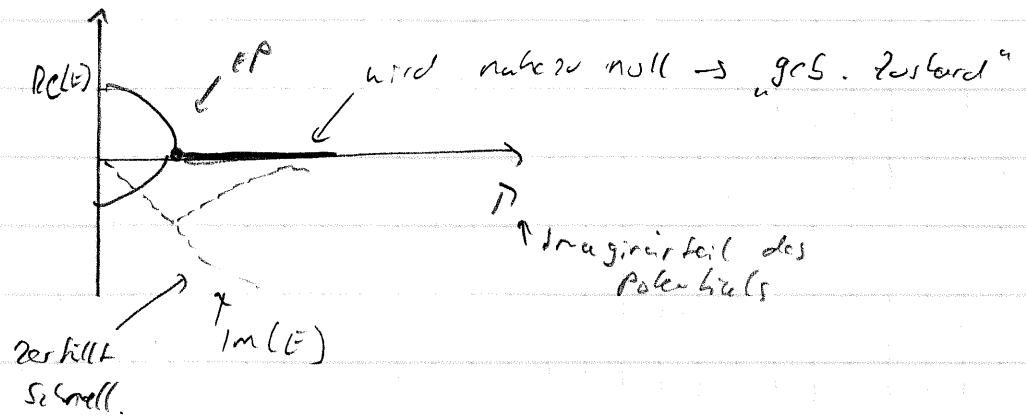 EP
wird nahezu null → „geb. Zustand“
Re(E)
Γ
↑ Imaginärteil des
Potentials
Im(E)
zerfällt
schnell.